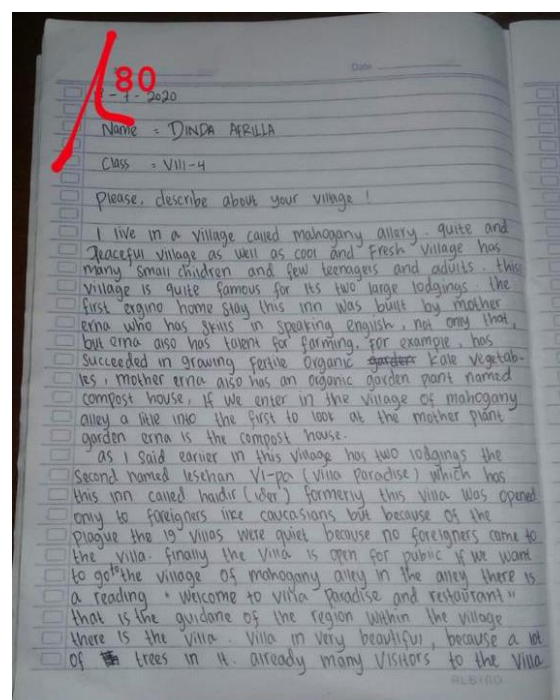 Date
80
- 1 - 2020
Name = DINDA AFRILLA
Class = VIII-4
Please, describe about your village !
I live in a village called mahogany allery. quite and
Peaceful village as well as cool and Fresh village has
many small children and few teenagers and adults. this
village is quite famous for its two large lodgings. the
first ergino home stay this inn was built by mother
erna who has skills in speaking english, not only that,
but erna also has talent for farming. for example, has
succeeded in growing fertile organic kale vegetab-
les, mother erna also has an organic garden pant named
compost house, If we enter in the village of mahogany
alley a litle into the first to look at the mother plant
garden erna is the compost house.
as I said earlier in this village has two lodgings the
second named lesehan Vi-pa (Villa Paradise) which has
this inn called haidir (ider) formerly this villa was opened
only to foreigners like caucasians but because of the
plague the 19 villas were quiet because no foreigners came to
the villa. finally the villa is open for public if we want
to go to the village of mahogany alley in the alley there is
a reading "welcome to villa paradise and restaurant"
that is the guidane of the region within the village
there is the villa. villa in very beautiful, because a lot
of trees in it. already many visitors to the villa
ALBINO